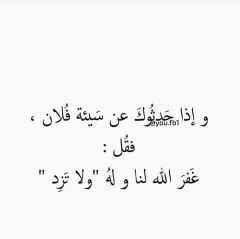 و إذا حَدثُوكَ عن سَيئة فُلان ،
@you.fb1
فقُل :
غَفرَ الله لنا و لهُ "ولا تَزِد "